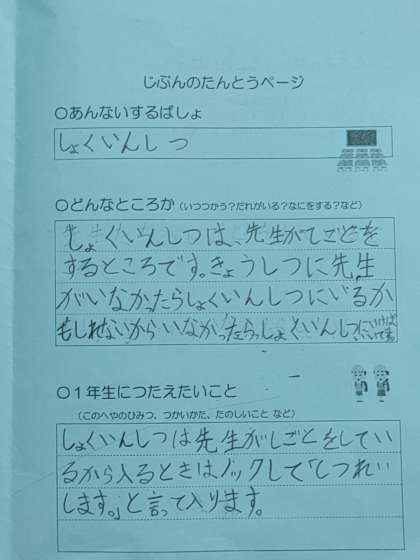 じぶんのたんとうページ
〇あんないするばしょ
しょくいんしつ
〇どんなところか（いつつかう？だれがいる？なにをする？など）
しょくいんしつは、先生がしごとを
するところです。きょうしつに先生
がいなかったらしょくいんしつにいるか
もしれないからいなかったらしょくいんしつに
〇１年生につたえたいこと
（このへやのひみつ、つかいかた、たのしいこと など）
しょくいんしつは先生がしごとをしてい
るから入るときはノックして「しつれい
します。」と言って入ります。